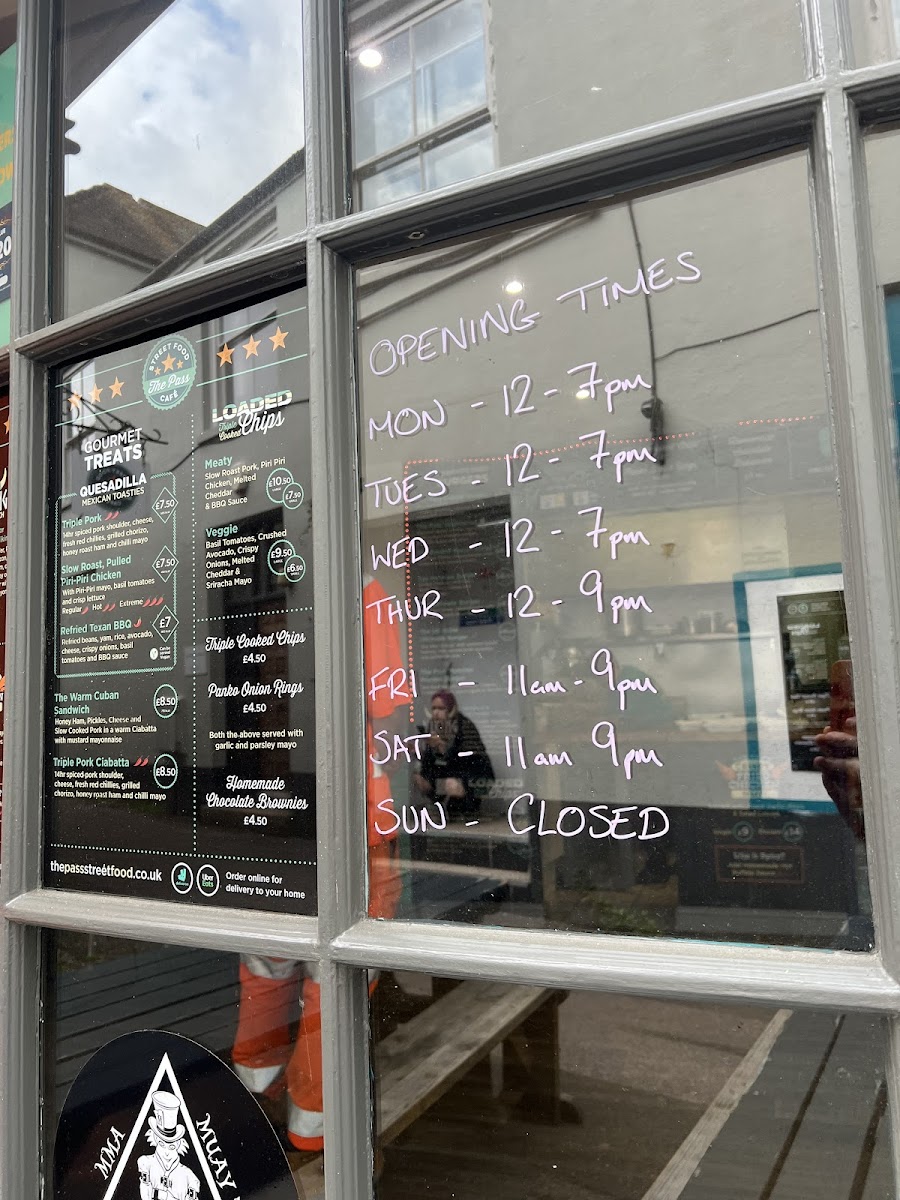 STREET FOOD
The Pass
CAFÉ
GOURMET
TREATS
QUESADILLA
MEXICAN TOASTIES
Triple Pork
£7.50
14hr spiced pork shoulder, cheese,
fresh red chillies, grilled chorizo,
honey roast ham and chilli mayo
Slow Roast, Pulled
Piri-Piri Chicken
£7.50
With Piri-Piri mayo, basil tomatoes
and crisp lettuce
Regular Hot Extreme
Refried Texan BBQ
£7
Refried beans, yam, rice, avocado,
cheese, crispy onions, basil
tomatoes and BBQ sauce
The Warm Cuban
Sandwich
£8.50
Honey Ham, Pickles, Cheese and
Slow Cooked Pork in a warm Ciabatta
with mustard mayonnaise
Triple Pork Ciabatta
£8.50
14hr spiced pork shoulder,
cheese, fresh red chillies, grilled
chorizo, honey roast ham and chilli mayo
LOADED
Triple
Cooked Chips
Meaty
Slow Roast Pork, Piri Piri
Chicken, Melted
Cheddar
& BBQ Sauce
£10.50
£7.50
Veggie
Basil Tomatoes, Crushed
Avocado, Crispy
Onions, Melted
Cheddar &
Sriracha Mayo
£9.50
£6.50
Triple Cooked Chips
£4.50
Panko Onion Rings
£4.50
Both the above served with
garlic and parsley mayo
Homemade
Chocolate Brownies
£4.50
thepassstreetfood.co.uk
deliveroo
Uber
Eats
Order online for
delivery to your home
OPENING TIMES
MON - 12 - 7pm
TUES - 12 - 7pm
WED - 12 - 7pm
THUR - 12 - 9pm
FRI - 11am - 9pm
SAT - 11am 9pm
SUN - CLOSED
MMA
MUAY